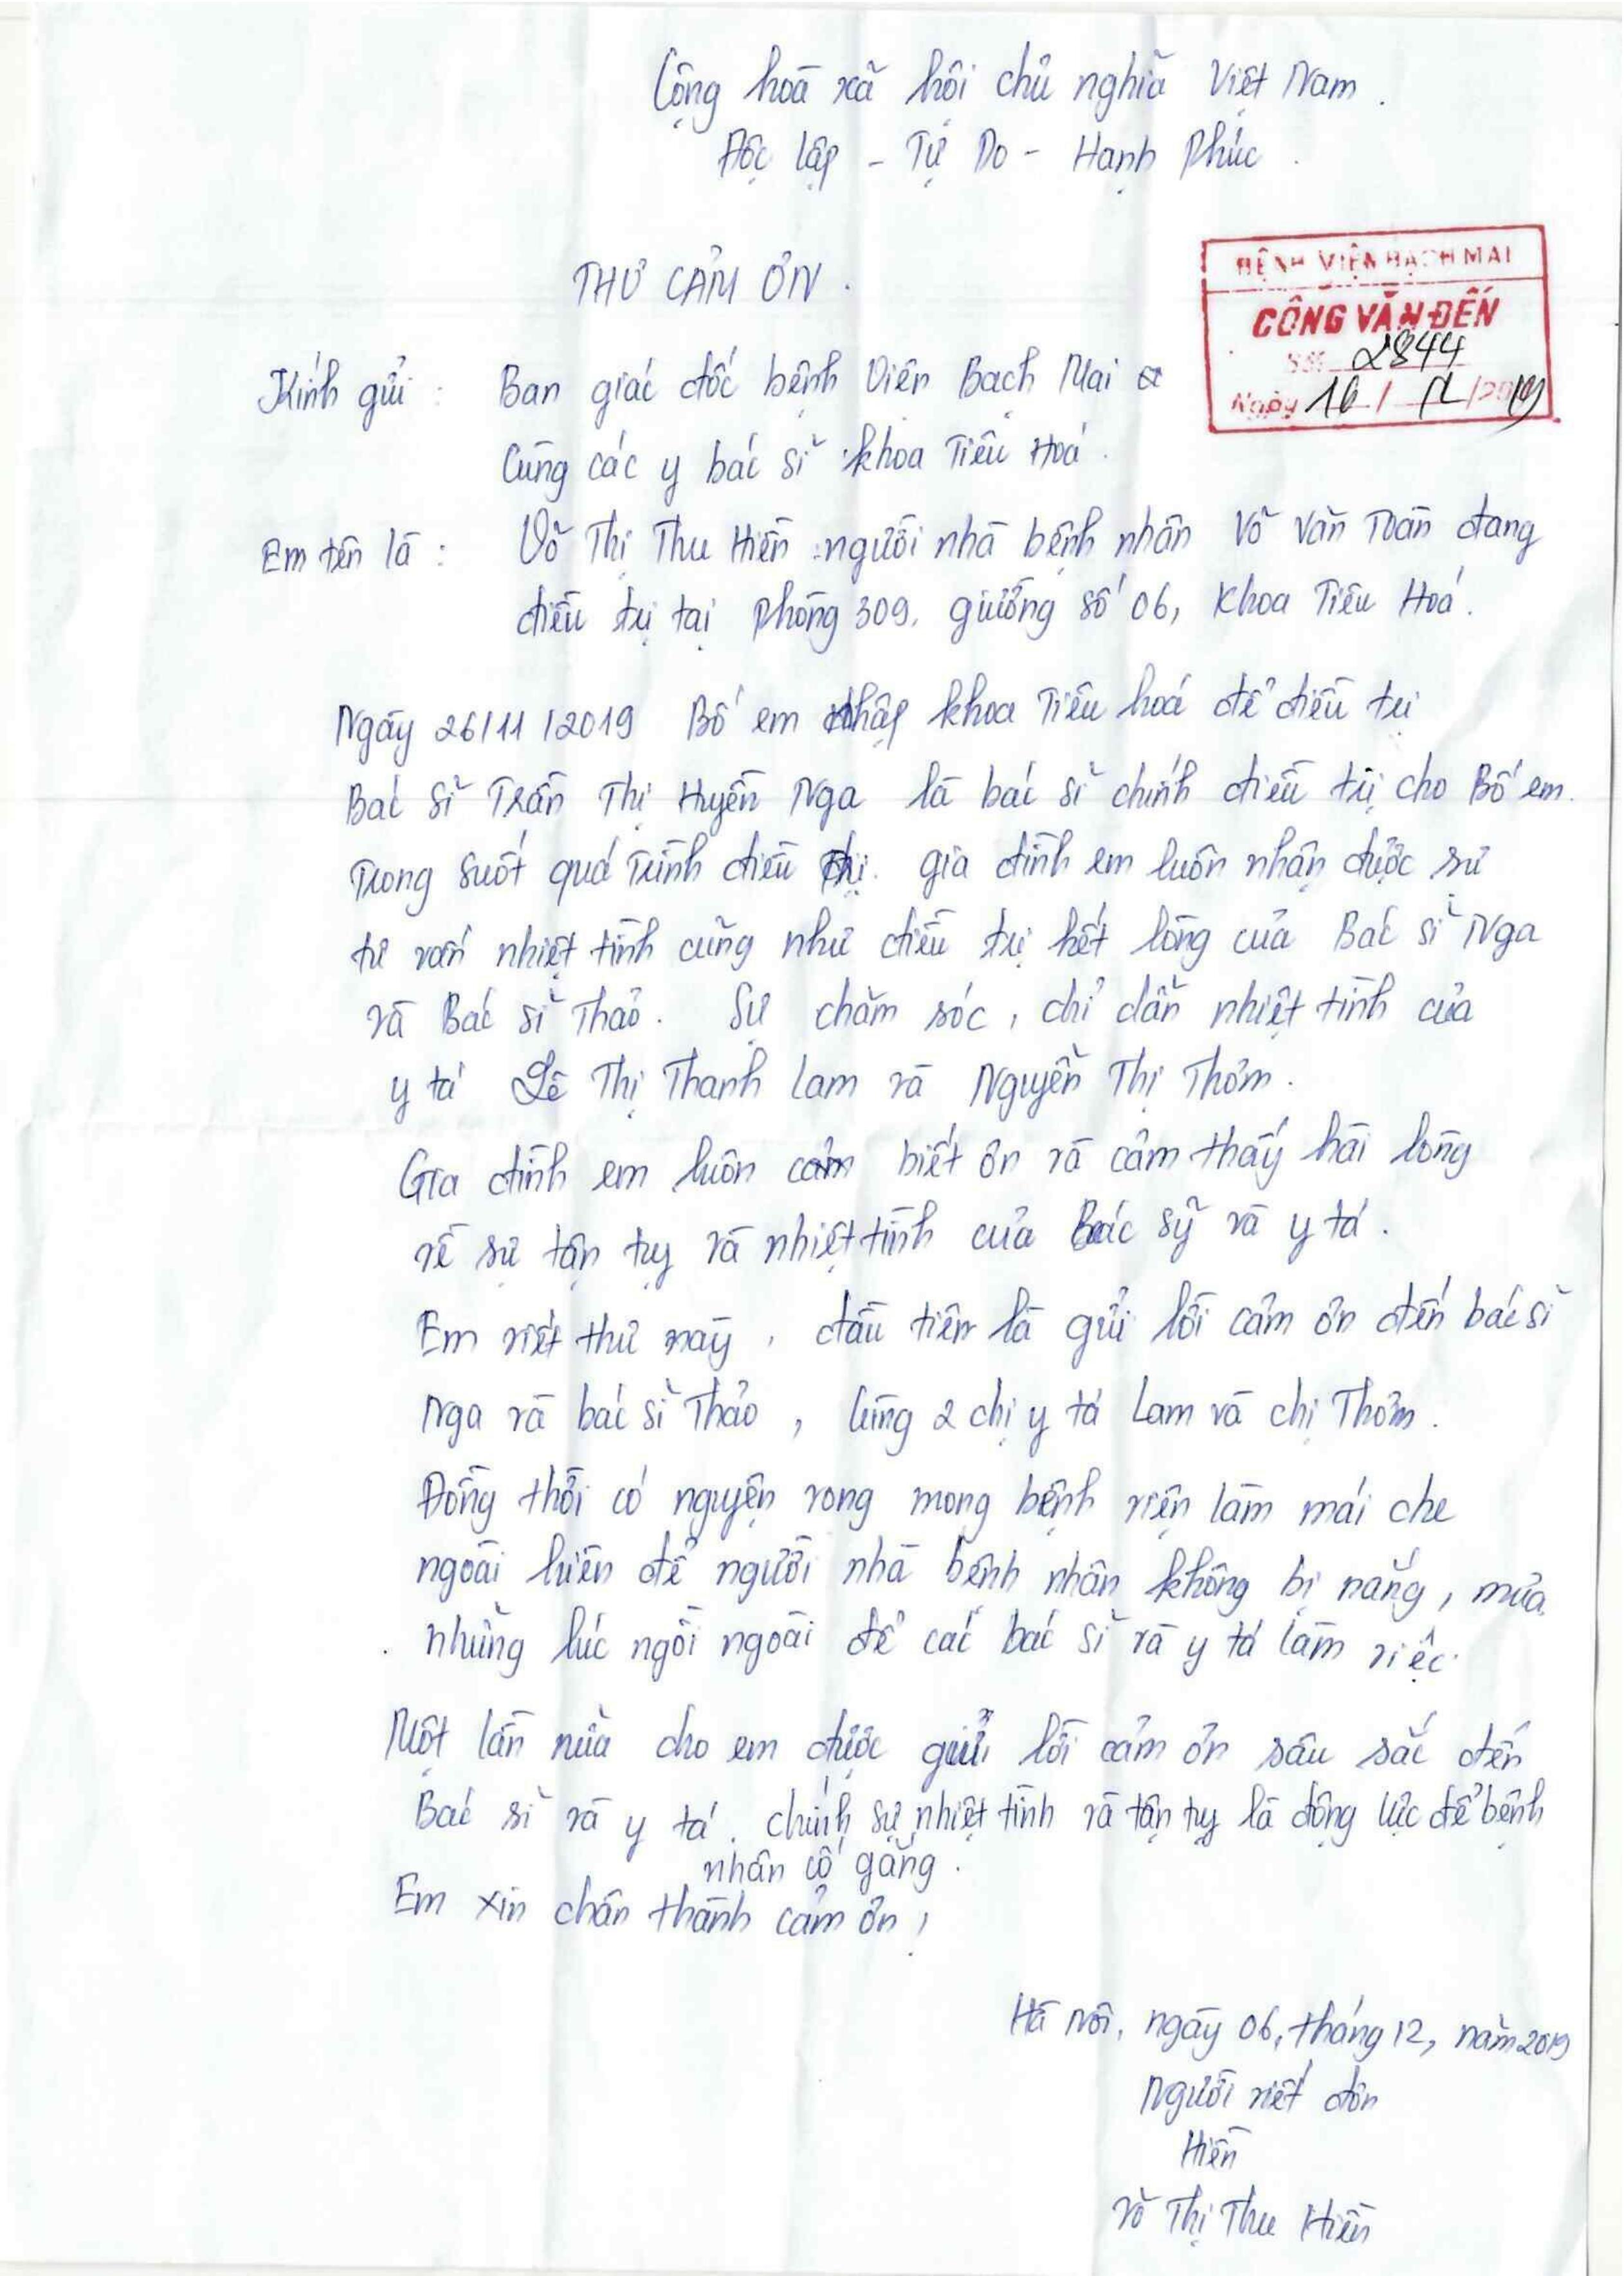 Cộng hoà xã hội chủ nghĩa Việt Nam.
Độc lập - Tự Do - Hạnh Phúc.
THƯ CẢM ƠN.
BỆNH VIỆN BẠCH MAI
CÔNG VĂN ĐẾN
Số: 2844
Ngày 16 / 12 / 2019
Kính gửi : Ban giác đốc bệnh Viện Bạch Mai
Cùng các y bác sĩ khoa Tiêu Hoá.
Em tên là : Võ Thị Thu Hiền : người nhà bệnh nhân Võ Văn Toàn đang
điều trị tại phòng 309, giường số 06, Khoa Tiêu Hoá.
Ngày 26/11/2019 Bố em nhập khoa Tiêu hoá để điều trị
Bác sĩ Trần Thị Huyền Nga là bác sĩ chính điều trị cho Bố em.
Trong suốt quá trình điều trị. gia đình em luôn nhận được sự
tư vấn nhiệt tình cũng như điều trị hết lòng của Bác sĩ Nga
và Bác sĩ Thảo. Sự chăm sóc, chỉ dẫn nhiệt tình của
y tá Lê Thị Thanh Lam và Nguyễn Thị Thơm.
Gia đình em luôn cảm biết ơn và cảm thấy hài lòng
về sự tận tụy và nhiệt tình của Bác sỹ và y tá.
Em viết thư này, đầu tiên là gửi lời cảm ơn đến bác sĩ
Nga và bác sĩ Thảo, cùng 2 chị y tá Lam và chị Thơm.
Đồng thời có nguyện vong mong bệnh viện làm mái che
ngoài hiên để người nhà bệnh nhân không bị nắng, mưa.
những lúc ngồi ngoài để các bác sĩ và y tá làm việc.
Một lần nữa cho em được gửi lời cảm ơn sâu sắc đến
Bác sĩ và y tá. chính sự nhiệt tình và tận tụy là động lực để bệnh
nhân cố gắng.
Em xin chân thành cảm ơn !
Hà Nội, ngày 06, tháng 12, năm 2019
Người viết đơn
Hiền
Võ Thị Thu Hiền